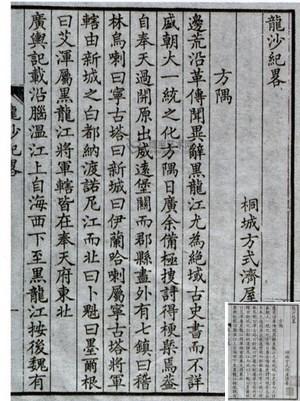 龍沙紀畧
桐城方式濟屋
方隅
邊荒沿革傳聞異辭黑龍江尤為絕域古史書而不詳
盛朝大一統之化方隅日廣余備極搜討得梗槩焉葢
自奉天過開原出威遠堡關而郡縣盡外有七鎮曰稽
林烏喇曰寧古塔曰新城曰伊蘭哈喇屬寧古塔將軍
轄由新城之白都納渡諾尼江而北曰卜魁曰墨爾根
曰艾渾屬黑龍江將軍轄皆在奉天府東北
廣輿記載沿腦溫江上自海西下至黑龍江按後魏有
龍沙紀畧